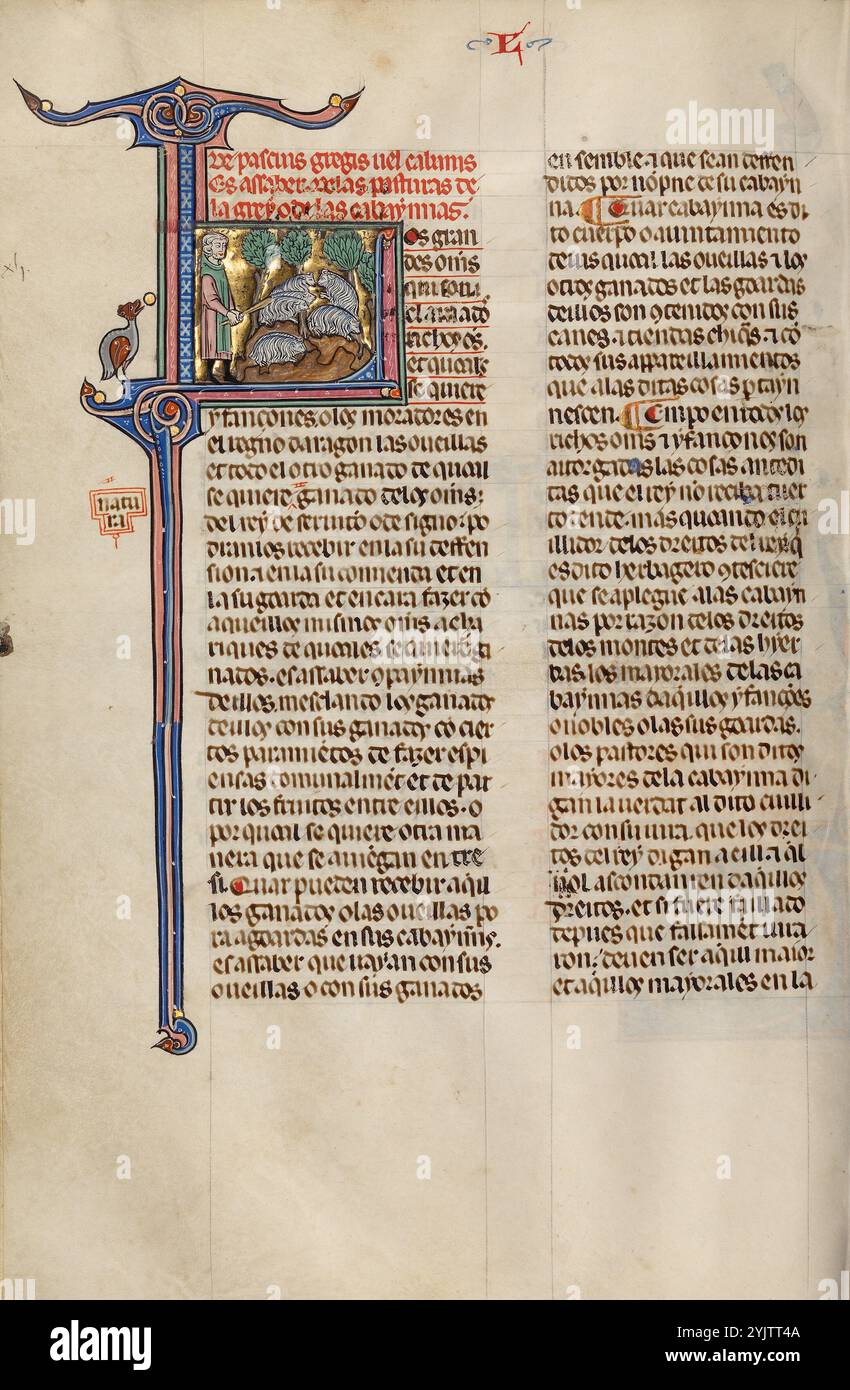 L
De pascuis gregis uel cabannis
Es assaber de las pasturas de
la grey o de las cabaynnas.
Los gran
des oms
qui son
richos
et quale
se quiere
yfançones. o los moradores en
el regno daragon las oueillas
et todo el otro ganado de quall
se quiere ganado delos oms:
del rey de seruicio o de signo: po
dran los recebir en la su deffen
sion ⁊ en la su comienda et en
la su goarda et encara fazer co
aqueillos mismos oms a cha
riques de quales se quiere ga
nados. es assaber compaynnias
deillos. mesclando los ganados
deillos con sus ganados con cier
tos paramientos de fazer espi
ensas comunalment et de par
tir los fruitos entre eillos. o
por quall se quiere otra ma
nera que se amengan entre
si. Quar pueden recebir aqll
los ganados o las oueillas po
ra agoardas en sus cabaynas.
es assaber que uayan con sus
oueillas o con sus ganados
natu
ra
xlj.
en semble. ⁊ que sean deffen
didos por nopne de su cabayn
na. Quar cabaynna es di
to cuerpo o aiuntamiento
en las quall las oueillas ⁊ los
otros ganados et las goardas
deillos son contenidos con sus
canes. ⁊ tiendas chiqas. ⁊ co
todos sus appareillamientos
que a las ditas cosas ptayn
nescen. Empo en todos los
richos oms ⁊ yfançones son
atorgadas las cosas antedi
tas que el rey no reciba tuer
to ende. mas quando el cu
illidor de los dreitos del rey q
es dito herbagero contesciere
que se aplegue a las cabayn
nas por razon de los dreitos
de los montes et de las hyer
bas. los mayorales de las ca
baynnas daqillos yfançones
o nobles o las sus goardas.
o los pastores qui son ditos
mayores de la cabaynna di
gan la uerdat al dito cuilli
dor con su iura. que los drei
tos del rey digan a eill ⁊ a ql
nol ascondan ren daqillos
dreitos. et si fuere faillado
depues que faillament iura
ron: deuen ser aqill maior
et aqillos mayorales en la
alamy
Image ID: 2YJTT4A
www.alamy.com